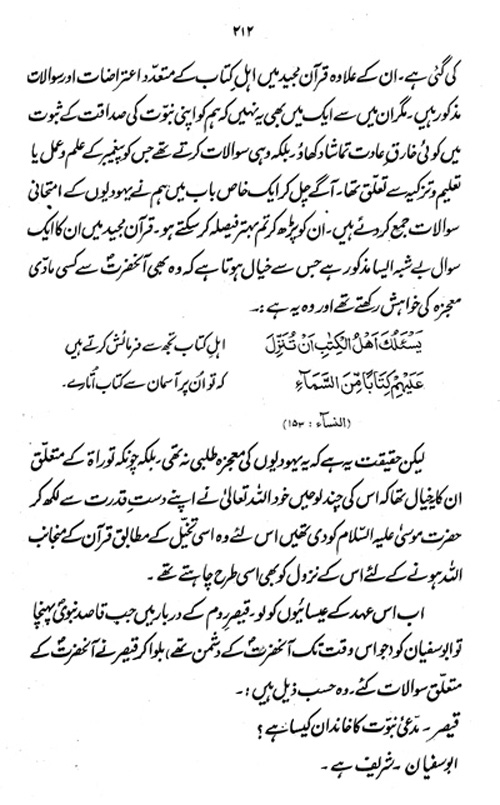 ۲۱۲
کی گئی ہے۔ ان کے علاوہ قرآن مجید میں اہلِ کتاب کے متعدّد اعتراضات اور سوالات
مذکور ہیں۔ مگر ان میں سے ایک میں بھی یہ نہیں کہ ہم کو اپنی نبوّت کی صداقت کے ثبوت
میں کوئی خارقِ عادت تماشا دکھاؤ۔ بلکہ وہی سوالات کرتے تھے جس کو پیغمبر کے علم و عمل یا
تعلیم و تزکیہ سے تعلّق تھا۔ آگے چل کر ایک خاص باب میں ہم نے یہودیوں کے امتحانی
سوالات جمع کر دئے ہیں۔ ان کو پڑھ کر تم بہتر فیصلہ کر سکتے ہو۔ قرآن مجید میں ان کا ایک
سوال بے شبہ ایسا مذکور ہے جس سے خیال ہوتا ہے کہ وہ بھی آنحضرتؐ سے کسی مادّی
معجزہ کی خواہش رکھتے تھے اور وہ یہ ہے :۔
يَسْـَٔلُكَ اَهْلُ الْكِتٰبِ اَنْ تُنَزِّلَ اہلِ کتاب تجھ سے فرمائش کرتے ہیں
عَلَيْهِمْ كِتَابًا مِّنَ السَّمَآءِ کہ تو ان پر آسمان سے کتاب اُتارے۔
(النسآء : ۱۵۳)
لیکن حقیقت یہ ہے کہ یہ یہودیوں کی معجزہ طلبی نہ تھی۔ بلکہ چونکہ توراۃ کے متعلق
ان کا یہ خیال تھا کہ اس کی چند لوحیں خود اللہ تعالیٰ نے اپنے دستِ قدرت سے لکھ کر
حضرت موسیٰ علیہ السّلام کو دی تھیں اس لئے وہ اسی تخیّل کے مطابق قرآن کے منجانب
اللہ ہونے کے لئے اس کے نزول کو بھی اسی طرح چاہتے تھے۔
اب اس عہد کے عیسائیوں کو لو۔ قیصرِ روم کے دربار میں جب قاصدِ نبویؐ پہنچا
تو ابوسفیان کو (جو اس وقت تک آنحضرتؐ کے دشمن تھے) بلوا کر قیصر نے آنحضرتؐ کے
متعلّق سوالات کئے۔ وہ حسب ذیل ہیں :۔
قیصر۔ مدّعیٔ نبوّت کا خاندان کیسا ہے؟
ابوسفیان۔ شریف ہے۔